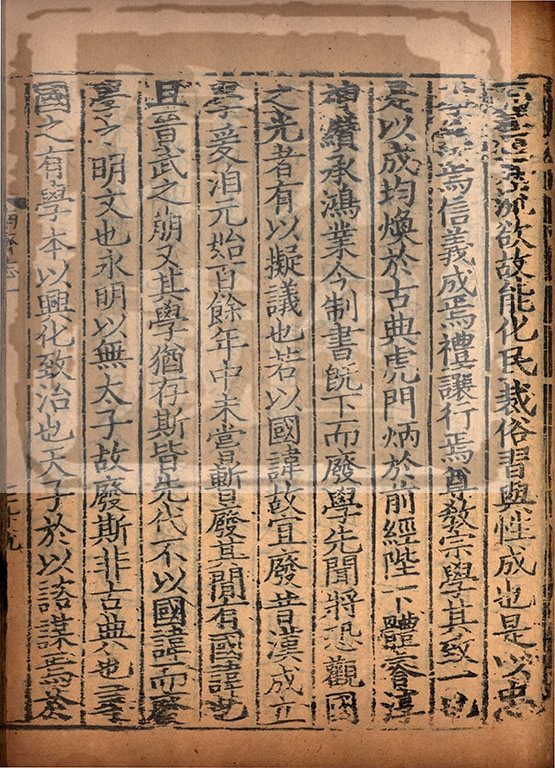 流欲故能化民裁俗習與性成也是以忠
焉信義成焉禮讓行焉尊敎宗學其致一也
是以成均煥於古典虎門炳於前經陛下體睿淳
神纘承鴻業今制書旣下而廢學先聞將恐觀國
之光者有以擬議也若以國諱故宜廢昔漢成立
學爰洎元始百餘年中未嘗暫廢其閒有國諱也
且晉武之崩又其學猶存斯皆先代不以國諱而廢
學之明文也永明以無太子故廢斯非古典也尋
國之有學本以興化致治也天子於以諮謀焉於